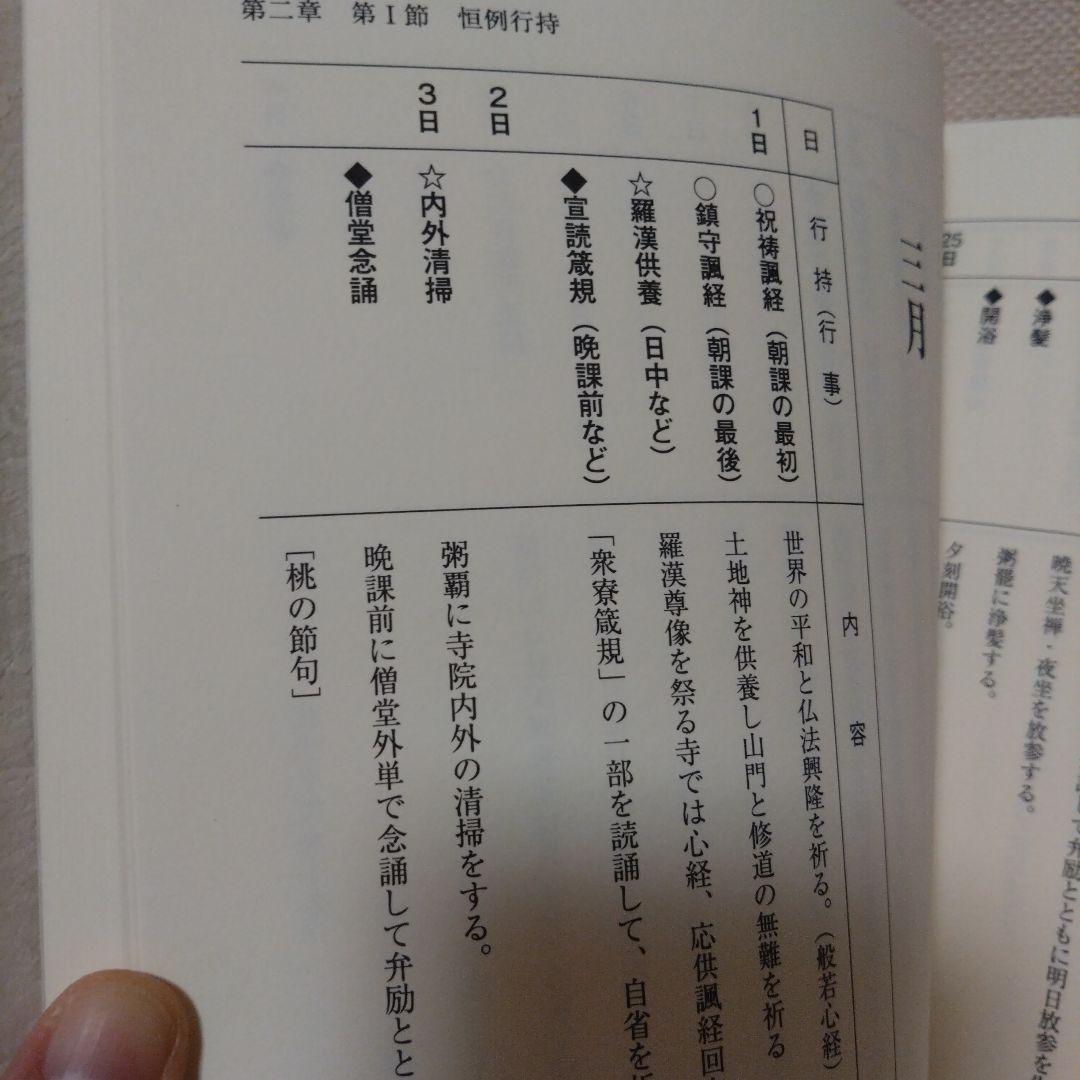 夕刻開浴。
粥罷に浄髪する。
暁天坐禅・夜坐を放参する。
して弁励とともに明日放参を
25日
◆浄髪
◆開浴
第二章　第Ⅰ節　恒例行持
三月
日
行持（行事）
内容
1日
○祝祷諷経（朝課の最初）
世界の平和と仏法興隆を祈る。（般若心経）
○鎮守諷経（朝課の最後）
土地神を供養し山門と修道の無難を祈る
☆羅漢供養（日中など）
羅漢尊像を祭る寺では心経、応供諷経回
◆宣読箴規（晩課前など）
「衆寮箴規」の一部を読誦して、自省を
2日
3日
☆内外清掃
粥覇に寺院内外の清掃をする。
◆僧堂念誦
晩課前に僧堂外単で念誦して弁励とと
［桃の節句］